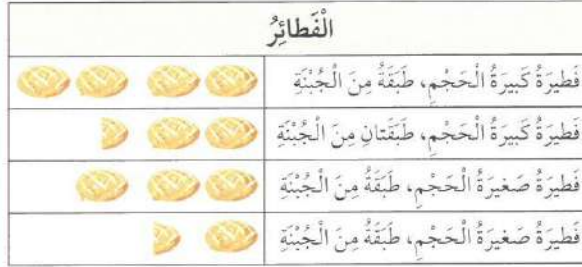 الْفَطائِرُ
فَطيرَةُ كَبيرَةُ الْحَجْمِ، طَبَقَةُ مِنَ الْجُبْنَةِ
فَطيرَةُ كَبيرَةُ الْحَجْمِ، طَبَقَتانِ مِنَ الْجُبْنَةِ
فَطيرَةُ صَغيرَةُ الْحَجْمِ، طَبَقَةُ مِنَ الْجُبْنَةِ
فَطيرَةُ صَغيرَةُ الْحَجْمِ، طَبَقَةُ مِنَ الْجُبْنَةِ